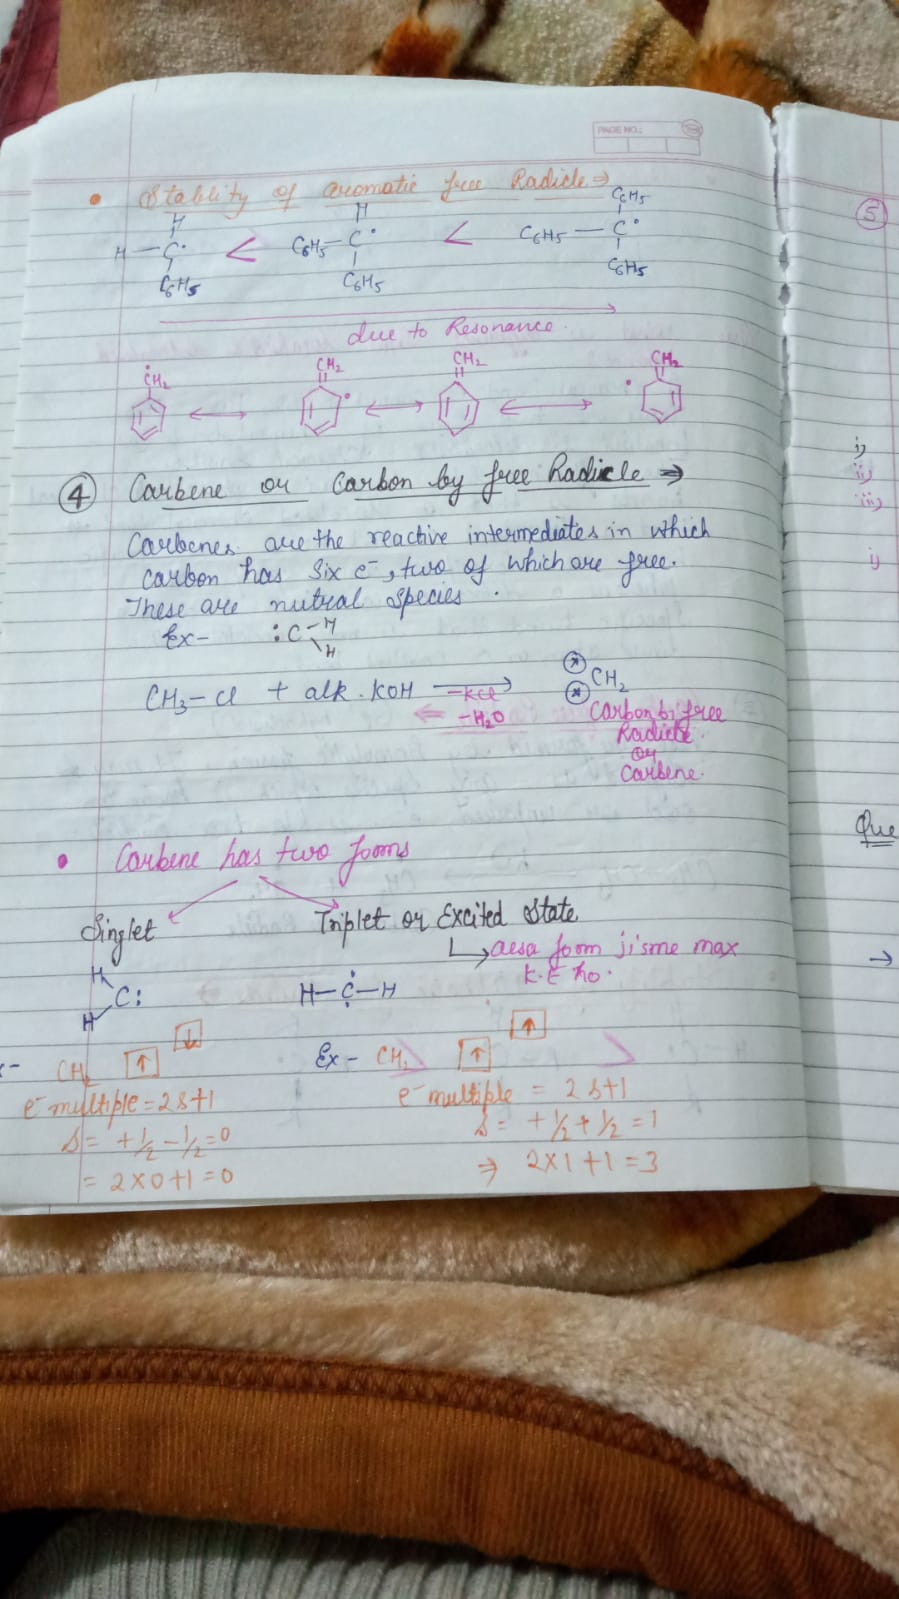 PAGE NO.:
• Stability of aromatic free Radicle ⇒
H H C6H5
H – C• < C6H5 – C• < C6H5 – C•
C6H5 C6H5 C6H5
due to Resonance.
ĊH2 CH2 CH2 CH2
④ Carbene or Carbon by free Radicle ⇒
Carbenes are the reactive intermediates in which
carbon has six e⁻, two of which are free.
These are nutral species.
Ex– :C–H
H
CH3–Cl + alk. KOH –KCl –H2O CH2
Carbon bi free
Radicle.
or
Carbene.
• Carbene has two forms
Singlet Triplet or Excited state
↳ aesa form jisme max
K.E ho.
H
C: H–C–H
H
CH2 ↑ ↓ Ex – CH2 ↑ ↑
e⁻ multiple = 2s+1 e⁻ multiple = 2s+1
s = +½ –½ = 0 s = +½ + ½ = 1
= 2×0+1 = 0 ⇒ 2×1+1 = 3
⑤
i)
ii)
iii)
i)
Que
→